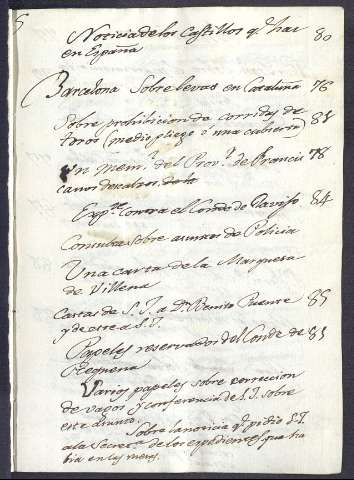 Noticia de los Castillos q.e hai 80
en España
Barcelona Sobre levas en Cataluña 76
Sobre prohibicion de corridas de
toros (medio pliego ó una cubierta) 85
Un mem.l del Prov.l de Francis 78
canos descalzos de la
Exp.te contra el Conde de 84
Consultas sobre asuntos de Policia
Una carta de la Marquesa
de Villena
Cartas de S. I. a D.n Benito Puente 85
y de este a S. I.
Papeles reservados del Conde de 85
Requena
Varios papeles sobre correccion
de vagos y conferencia de S. I. sobre
este asunto.
Sobre la noticia q.e pidio S. I.
a la Secret.a de los expedientes que ha
bia en las mesas.